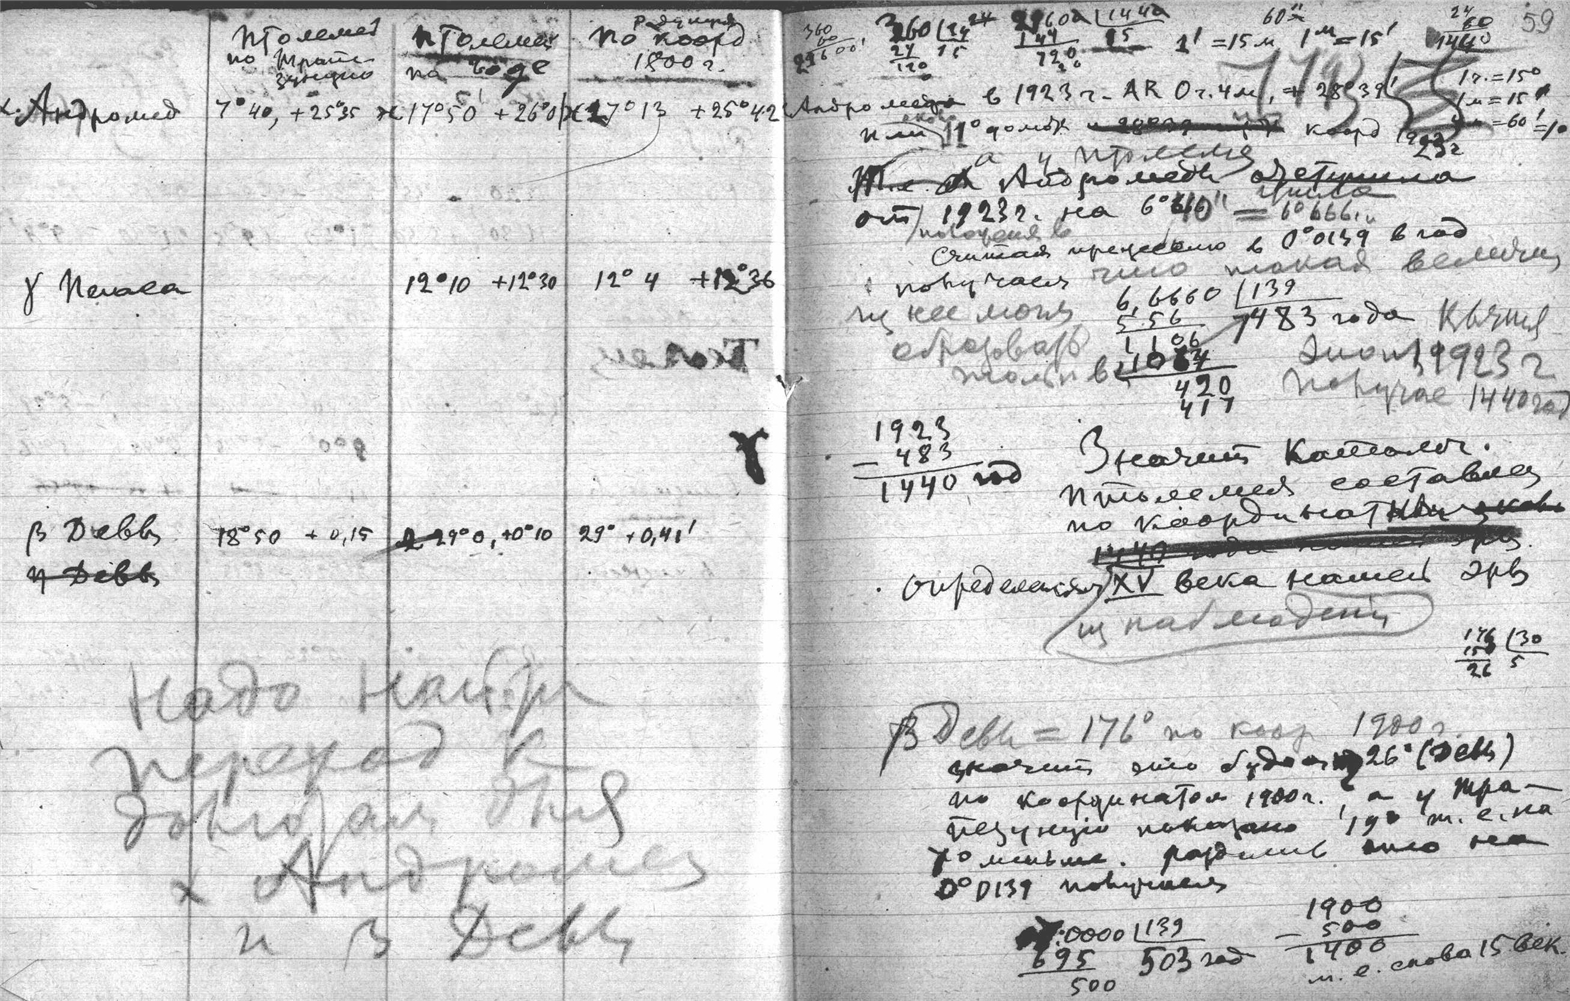 Птолемей
по Трапе-
зунцию
Птолемей
по Боде
по коорд
1800 г.
Андромед 7°40, +25°35 17°50' +26°0' 27°13 +25°42
γ Пегаса 12°10 +12°30 12° 4 +12°36
γ
β Девы 18°50 +0,15 29°0, +0°10 29° +0,41'
η Девы
Надо найти
переход к
долготам для
Андромед
и β Девы
59
360
60
21600'
360 24
24 15
120
21600 1440
1440 15
720
1' = 15 м 1м = 15'
60"
24
60
1440
Андромеда в 1923 г. AR 0 г. 4 м, + 28°39'
1 г. = 15°
1 м = 15'
или около 11° долготы коорд 1923 г
а у Птолемея
Андромеды отступила
от 1923 г. на 6°40' = 6°666
Считая прецессию в 0°0139 в год
получаем что такая величина
6,6660 139
556 483 года
1106
420
417
из нее могла
образоваться
только в
1923 г
получае 1440 год
1923
– 483
1440 год
Значит Каталог
Птолемея составлен
по координатам
определения XV века нашей эры
из наблюдений
176 30
150 5
26
β Девы = 176° по коор 1900 г.
значит это будет 26° (Девы)
по координатам 1900 г., а у Тра-
пезунцию показано 19° т.е. на
7° меньше. разделив это на
0°0139 получаем
7:0000 139
695 503 год
500
1900
– 500
1400
т. е. снова 15 век.